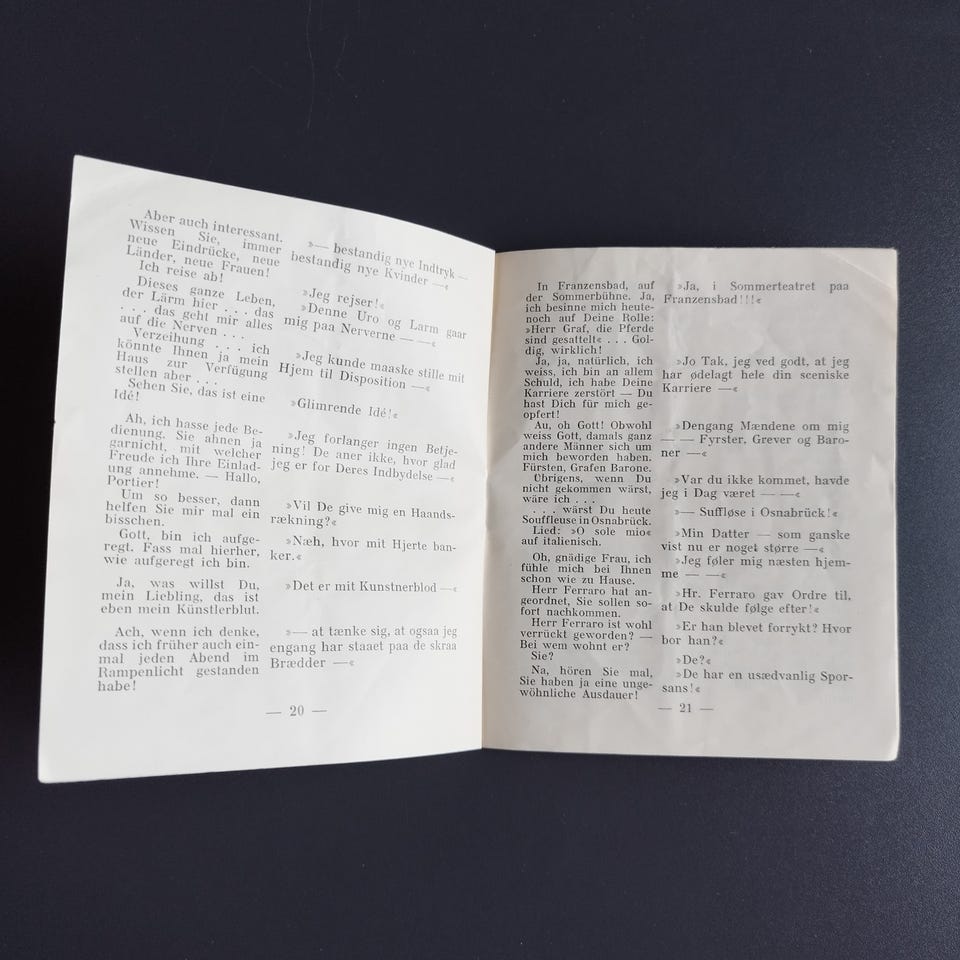 Aber auch interessant.
Wissen Sie, immer
neue Eindrücke, neue
Länder, neue Frauen!
Ich reise ab!
Dieses ganze Leben,
der Lärm hier . . . das
. . . das geht mir alles
auf die Nerven . . .
Verzeihung . . . ich
könnte Ihnen ja mein
Haus zur Verfügung
stellen aber . . .
Sehen Sie, das ist eine
Idé!
Ah, ich hasse jede Be-
dienung. Sie ahnen ja
garnicht, mit welcher
Freude ich Ihre Einlad-
ung annehme. — Hallo,
Portier!
Um so besser, dann
helfen Sie mir mal ein
bisschen.
Gott, bin ich aufge-
regt. Fass mal hierher,
wie aufgeregt ich bin.
Ja, was willst Du,
mein Liebling, das ist
eben mein Künstlerblut.
Ach, wenn ich denke,
dass ich früher auch ein-
mal jeden Abend im
Rampenlicht gestanden
habe!
»— bestandig nye Indtryk —
bestandig nye Kvinder —«
»Jeg rejser!«
»Denne Uro og Larm gaar
mig paa Nerverne — —«
»Jeg kunde maaske stille mit
Hjem til Disposition —«
»Glimrende Idé!«
»Jeg forlanger ingen Betje-
ning! De aner ikke, hvor glad
jeg er for Deres Indbydelse —«
»Vil De give mig en Haands-
rækning?«
»Næh, hvor mit Hjerte ban-
ker.«
»Det er mit Kunstnerblod —«
»— at tænke sig, at ogsaa jeg
engang har staaet paa de skraa
Brædder —«
— 20 —
In Franzensbad, auf
der Sommerbühne. Ja,
ich besinne mich heute-
noch auf Deine Rolle:
»Herr Graf, die Pferde
sind gesattelt« . . . Gol-
dig, wirklich!
Ja, ja, natürlich, ich
weiss, ich bin an allem
Schuld, ich habe Deine
Karriere zerstört — Du
hast Dich für mich ge-
opfert!
Au, oh Gott! Obwohl
weiss Gott, damals ganz
andere Männer sich um
mich beworben haben.
Fürsten, Grafen Barone.
Übrigens, wenn Du
nicht gekommen wärst,
wäre ich . . .
. . . wärst Du heute
Souffleuse in Osnabrück.
Lied: »O sole mio«
auf italienisch.
Oh, gnädige Frau, ich
fühle mich bei Ihnen
schon wie zu Hause.
Herr Ferraro hat an-
geordnet, Sie sollen so-
fort nachkommen.
Herr Ferraro ist wohl
verrückt geworden? —
Bei wem wohnt er?
Sie?
Na, hören Sie mal,
Sie haben ja eine unge-
wöhnliche Ausdauer!
»Ja, i Sommerteatret paa
Franzensbad!!!«
»Jo Tak, jeg ved godt, at jeg
har ødelagt hele din sceniske
Karriere —«
»Dengang Mændene om mig
— — Fyrster, Grever og Baro-
ner —«
»Var du ikke kommet, havde
jeg i Dag været — —«
»— Suffløse i Osnabrück!«
»Min Datter — som ganske
vist nu er noget større —«
»Jeg føler mig næsten hjem-
me — —«
»Hr. Ferraro gav Ordre til,
at De skulde følge efter!«
»Er han blevet forrykt? Hvor
bor han?«
»De?«
»De har en usædvanlig Spor-
sans!«
— 21 —